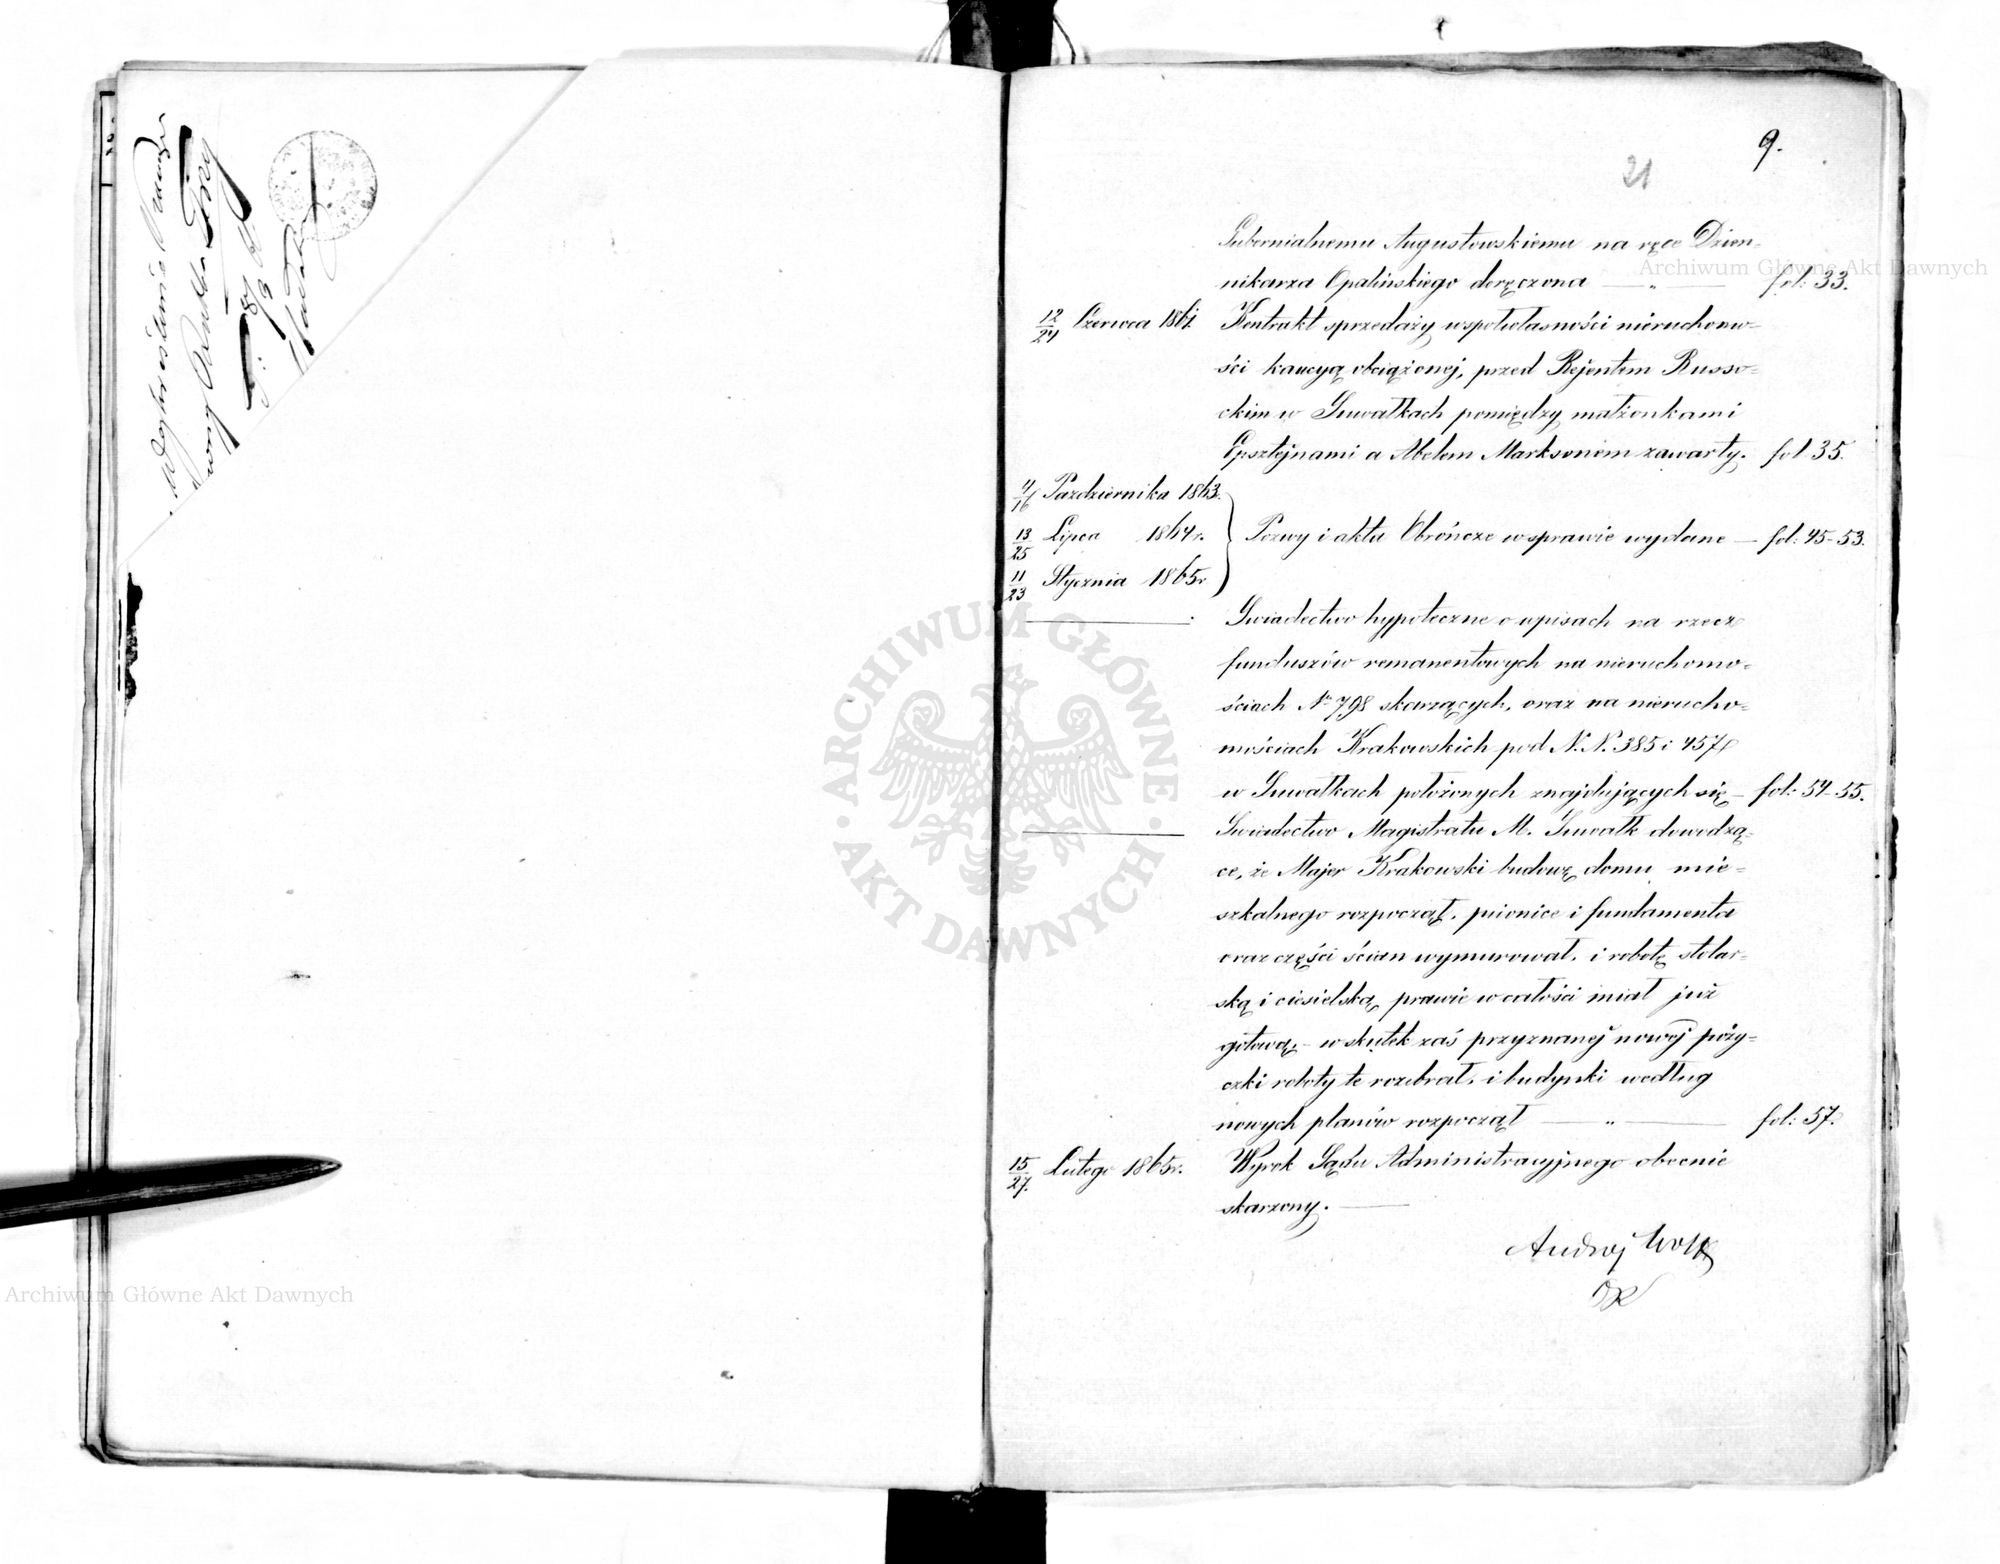 9.
21
Gubernialnemu Augustowskiemu na ręce Dzien-
nikarza Opalińskiego doręczona — „ — fol: 33.
12/24 Czerwca 1864 Kontrakt sprzedaży wspołwłasności nieruchomo-
ści kaucyą obciążonej, przed Rejentem Russo-
ckim w Suwałkach pomiędzy małżonkami
Epsztejnami a Abelem Marksonem zawarty. fol 35.
4/16 Pazdziernika 1863.
13/25 Lipca 1864 r. Pozwy i akta Obrończe w sprawie wydane — fol: 45-53.
11/23 Stycznia 1865 r
Swiadectwo hypoteczne o wpisach na rzecz
funduszów remanentowych na nieruchomo-
ściach No 798 skarzących, oraz na nierucho-
mościach Krakowskich pod N. N. 385 i 457
w Suwałkach położonych znajdujących się — fol: 54-55.
Swiadectwo Magistratu M. Suwałk dowodzą-
ce, że Majer Krakowski budowę domu mie-
szkalnego rozpoczął, piwnice i fundamenta
oraz części ścian wymurował, i robotę stolar-
ską i ciesielską, prawie w całości miał już
gotową, – w skutek zaś przyznanej nowej poży-
czki roboty te rozebrał, i budynki według
nowych planów rozpoczął — „ — fol: 57.
15/27. Lutego 1865 r. Wyrok Sądu Administracyjnego obecnie
skarzony. —
Andrzej Wolff
ARCHIWUM GŁÓWNE AKT DAWNYCH
Archiwum Główne Akt Dawnych
Archiwum Główne Akt Dawnych